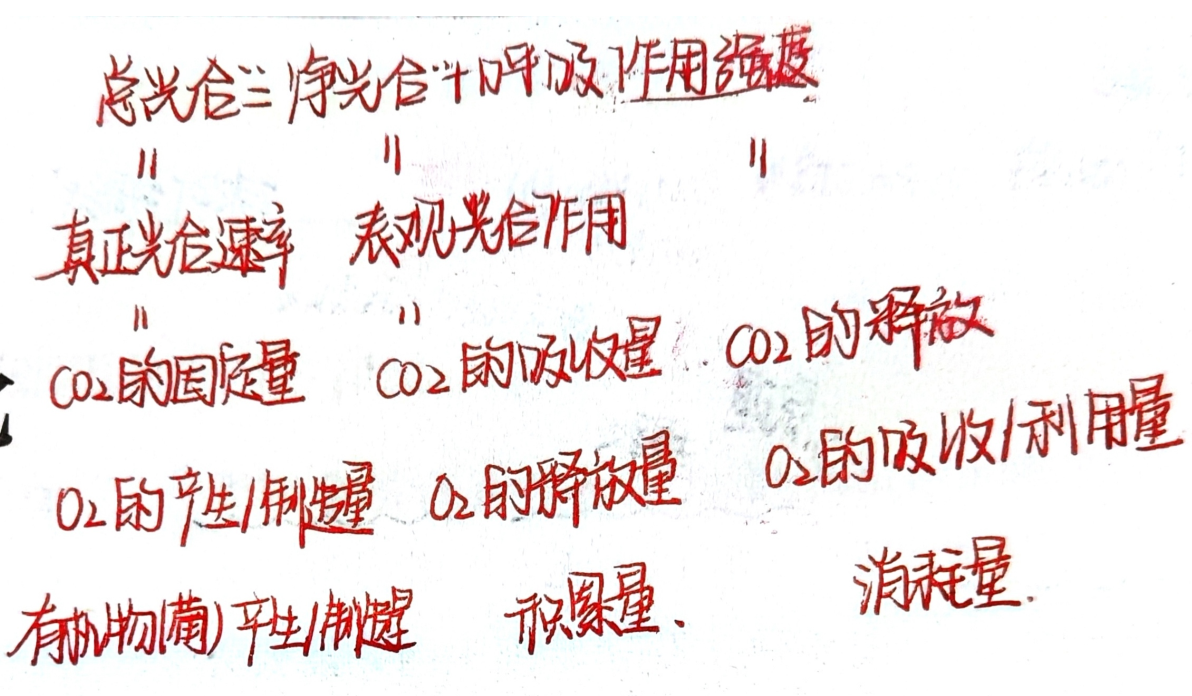 总光合 = 净光合 + 呼吸作用强度
= = =
真正光合速率 表观光合作用
= =
CO2的固定量 CO2的吸收量 CO2的释放
O2的产生/制造量 O2的释放量 O2的吸收/利用量
有机物(葡)产生/制造量 积累量. 消耗量.